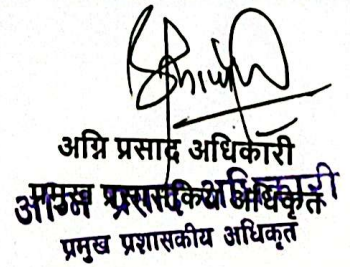 अग्नि प्रसाद अधिकारी
प्रमुख प्रशासकीय अधिकृत
अग्नि प्रसाद अधिकारी
प्रमुख प्रशासकीय अधिकृत